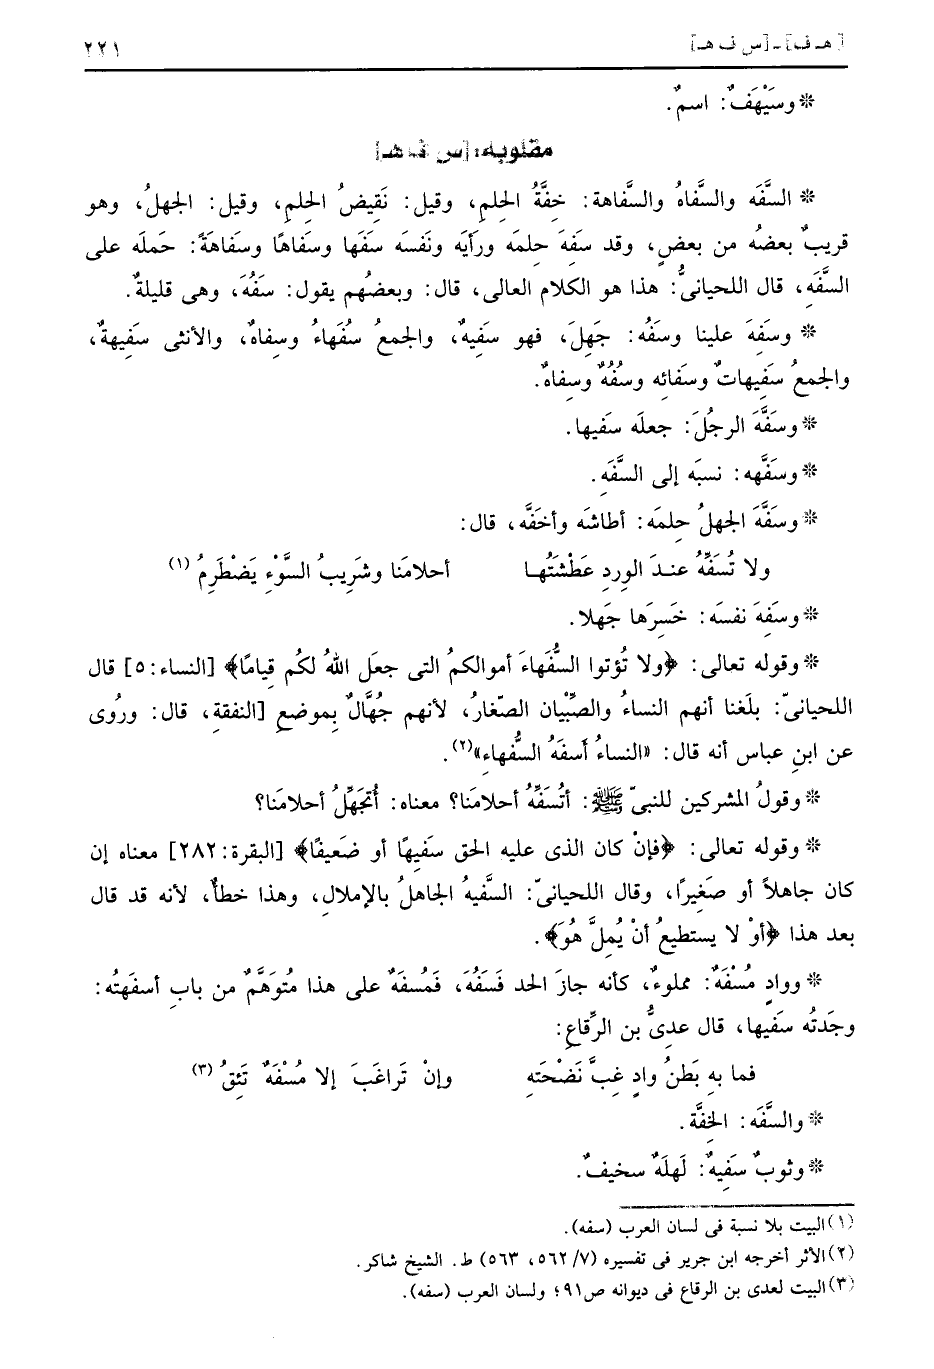 [هـ ف] ـ [س ف هـ] ٢٢١
* وسَيْهَفٌ: اسمٌ.
مقلوبه: [س ف هـ]
* السَّفَه والسَّفاهُ والسَّفاهة: خِفَّةُ الحِلمِ، وقيل: نَقِيضُ الحِلمِ، وقيل: الجهلُ، وهو
قريبٌ بعضُه من بعضٍ، وقد سَفِهَ حِلمَه ورَأيَه ونَفسَه سَفَها وسَفاهًا وسَفاهَةً: حَملَه على
السَّفَهِ، قال اللحيانىُّ: هذا هو الكلام العالى، قال: وبعضُهم يقول: سَفُهَ، وهى قليلةٌ.
* وسَفِهَ علينا وسَفُه: جَهِلَ، فهو سَفيهٌ، والجمعُ سُفَهاءُ وسِفاهٌ، والأنثى سَفِيهةٌ،
والجمعُ سَفِيهاتٌ وسَفائه وسُفُهٌ وسِفاهٌ.
* وسَفَّهَ الرجُلَ: جعلَه سَفيها.
* وسَفَّهه: نسبَه إلى السَّفَهِ.
* وسَفَّهَ الجهلُ حِلمَه: أطاشَه وأخَفَّه، قال:
ولا تُسَفِّهُ عنـدَ الوِردِ عَطْشَتُهـا أحلامَنا وشَرِيبُ السَّوْءِ يَضْطَرِمُ (١)
* وسَفِهَ نفسَه: خَسِرَها جَهلا.
* وقوله تعالى: ﴿ولا تُؤتوا السُّفَهاءَ أموالكمُ التى جعلَ اللهُ لكُم قيامًا﴾ [النساء: ٥] قال
اللحيانىّ: بلَغنا أنهم النساءُ والصِّبْيان الصّغارُ، لأنهم جُهَّالٌ بِموضعِ [النفقةِ، قال: ورُوى
عن ابنِ عباس أنه قال: «النساءُ أَسفَهُ السُّفهاءِ»(٢).
* وقولُ المشركين للنبىّ ﷺ: أتُسَفِّهُ أحلامَنا؟ معناه: أُتجَهِّلُ أحلامَنا؟
* وقوله تعالى: ﴿فإنْ كان الذى عليه الحق سَفيهًا أو ضَعيفًا﴾ [البقرة: ٢٨٢] معناه إن
كان جاهلاً أو صَغيرًا، وقال اللحيانىّ: السَّفيهُ الجاهلُ بالإملالِ، وهذا خطأٌ، لأنه قد قال
بعد هذا ﴿أوْ لا يستطيعُ أنْ يُمِلَّ هُوَ﴾.
* ووادٍ مُسْفَهٌ: مملوءٌ، كأنه جازَ الحد فَسَفُهَ، فَمُسفَهٌ على هذا مُتوَهَّمٌ من بابِ أسفَهتُه:
وجَدتُه سَفيها، قال عدِىُّ بن الرِّقاعِ:
فما به بَطنُ وادٍ غِبَّ نَضْحَتِه وإنْ تَراغَبَ إلا مُسْفَهٌ تَئِقُ (٣)
* والسَّفَه: الخِفَّة.
* وثوبٌ سَفِيهٌ: لَهلَهٌ سخيفٌ.
(١) البيت بلا نسبة فى لسان العرب (سفه).
(٢) الأثر أخرجه ابن جرير فى تفسيره (٧/ ٥٦٢، ٥٦٣) ط. الشيخ شاكر.
(٣) البيت لعدى بن الرقاع فى ديوانه ص٩١؛ ولسان العرب (سفه).